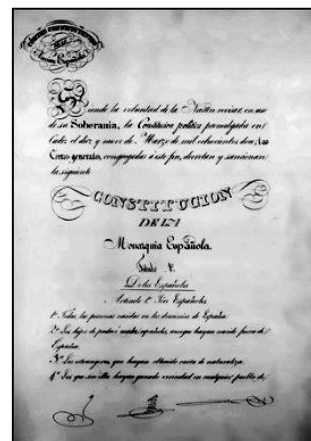 Siendo la voluntad de la Nacion revisar, en uso
de su Soberanía, la Constitucion politica promulgada en
Cadiz el diez y nueve de Marzo de mil ochocientos doce, las
Cortes generales, congregadas á este fin, decretan y sancionan
la siguiente
CONSTITUCION
DE LA
Monarquia Española.
De los Españoles
Españoles
1º Todas las personas nacidas en los dominios de España.
2º Los hijos de padre ó madre españoles, aunque hayan nacido fuera de
España.
3º Los estrangeros que hayan obtenido carta de naturaleza.
4º Los que sin ella hayan ganado vecindad en cualquier pueblo de